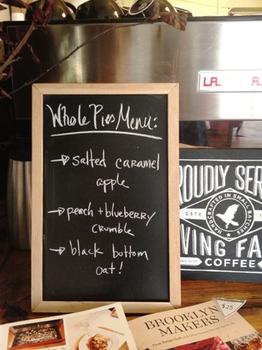 Whole Pies Menu:
→ salted caramel
apple
→ peach + blueberry
crumble
→ black bottom
oat!
ROUDLY SER
HANDCRAFTED IN SMALL BATCHES
VING FA
COFFEE
BROOKLYN
MAKERS
$25